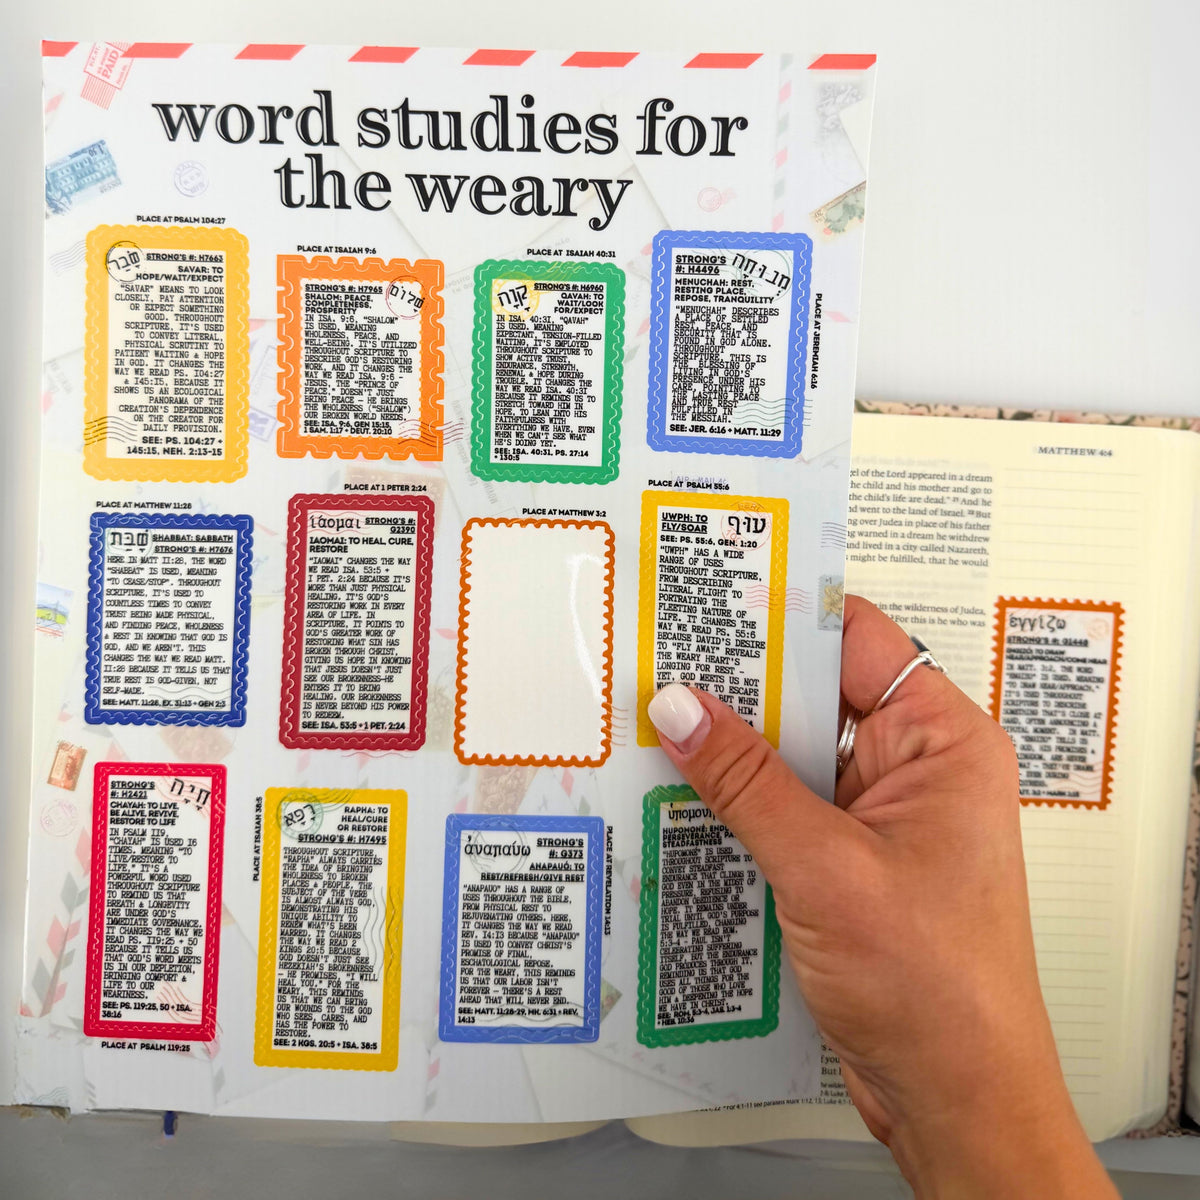 word studies for
the weary
PLACE AT PSALM 104:27
שבר
STRONG'S #: H7663
SAVAR: TO
HOPE/WAIT/EXPECT
"SAVAR" MEANS TO LOOK
CLOSELY, PAY ATTENTION
OR EXPECT SOMETHING
GOOD. THROUGHOUT
SCRIPTURE, IT'S USED
TO CONVEY LITERAL,
PHYSICAL SCRUTINY TO
PATIENT WAITING & HOPE
IN GOD. IT CHANGES THE
WAY WE READ PS. 104:27
& 145:15, BECAUSE IT
SHOWS US AN ECOLOGICAL
PANORAMA OF THE
CREATION'S DEPENDENCE
ON THE CREATOR FOR
DAILY PROVISION.
SEE: PS. 104:27 +
145:15, NEH. 2:13-15
PLACE AT ISAIAH 9:6
STRONG'S #: H7965
שלום
SHALOM: PEACE,
COMPLETENESS,
PROSPERITY
IN ISA. 9:6, "SHALOM"
IS USED, MEANING
WHOLENESS, PEACE, AND
WELL-BEING. IT'S UTILIZED
THROUGHOUT SCRIPTURE TO
DESCRIBE GOD'S RESTORING
WORK, AND IT CHANGES THE
WAY WE READ ISA. 9:6 -
JESUS, THE "PRINCE OF
PEACE," DOESN'T JUST
BRING PEACE — HE BRINGS
THE WHOLENESS ("SHALOM")
OUR BROKEN WORLD NEEDS.
SEE: ISA. 9:6, GEN 15:15,
1 SAM. 1:17 + DEUT. 20:10
PLACE AT ISAIAH 40:31
קוה
STRONG'S #: H6960
QAVAH: TO
WAIT/LOOK
FOR/EXPECT
IN ISA. 40:31, "QAVAH"
IS USED, MEANING
EXPECTANT, TENSION-FILLED
WAITING, IT'S EMPLOYED
THROUGHOUT SCRIPTURE TO
SHOW ACTIVE TRUST,
ENDURANCE, STRENGTH,
RENEWAL & HOPE DURING
TROUBLE. IT CHANGES THE
WAY WE READ ISA. 40:31
BECAUSE IT REMINDS US TO
STRETCH TOWARD HIM IN
HOPE, TO LEAN INTO HIS
FAITHFULNESS WITH
EVERYTHING WE HAVE, EVEN
WHEN WE CAN'T SEE WHAT
HE'S DOING YET.
SEE: ISA. 40:31, PS. 27:14
+ 130:5
PLACE AT JEREMIAH 6:16
STRONG'S
#: H4496
מנוחה
MENUCHAH: REST,
RESTING PLACE,
REPOSE, TRANQUILITY
"MENUCHAH" DESCRIBES
A PLACE OF SETTLED
REST, PEACE, AND
SECURITY THAT IS
FOUND IN GOD ALONE.
THROUGHOUT
SCRIPTURE, THIS IS
THE BLESSING OF
LIVING IN GOD'S
PRESENCE UNDER HIS
CARE, POINTING TO
THE LASTING PEACE
AND TRUE REST
FULFILLED IN
THE MESSIAH.
SEE: JER. 6:16 + MATT. 11:29
PLACE AT MATTHEW 11:28
שבת
SHABBAT: SABBATH
STRONG'S #: H7676
HERE IN MATT 11:28, THE WORD
"SHABBAT" IS USED, MEANING
"TO CEASE/STOP". THROUGHOUT
SCRIPTURE, IT'S USED TO
COUNTLESS TIMES TO CONVEY
TRUST BEING MADE PHYSICAL,
AND FINDING PEACE, WHOLENESS
& REST IN KNOWING THAT GOD IS
GOD, AND WE AREN'T. THIS
CHANGES THE WAY WE READ MATT.
11:28 BECAUSE IT TELLS US THAT
TRUE REST IS GOD-GIVEN, NOT
SELF-MADE.
SEE: MATT. 11:28, EX. 31:13 + GEN 2:3
PLACE AT 1 PETER 2:24
ἰάομαι
STRONG'S #:
G2390
IAOMAI: TO HEAL, CURE,
RESTORE
"IAOMAI" CHANGES THE WAY
WE READ ISA. 53:5 +
1 PET. 2:24 BECAUSE IT'S
MORE THAN JUST PHYSICAL
HEALING. IT'S GOD'S
RESTORING WORK IN EVERY
AREA OF LIFE. IN
SCRIPTURE, IT POINTS TO
GOD'S GREATER WORK OF
RESTORING WHAT SIN HAS
BROKEN THROUGH CHRIST,
GIVING US HOPE IN KNOWING
THAT JESUS DOESN'T JUST
SEE OUR BROKENNESS—HE
ENTERS IT TO BRING
HEALING. OUR BROKENNESS
IS NEVER BEYOND HIS POWER
TO REDEEM.
SEE: ISA. 53:5 + 1 PET. 2:24
PLACE AT MATTHEW 3:2
PLACE AT PSALM 55:6
UWPH: TO
FLY/SOAR
עוף
SEE: PS. 55:6, GEN. 1:20
"UWPH" HAS A WIDE
RANGE OF USES
THROUGHOUT SCRIPTURE,
FROM DESCRIBING
LITERAL FLIGHT TO
PORTRAYING THE
FLEETING NATURE OF
LIFE. IT CHANGES THE
WAY WE READ PS. 55:6
BECAUSE DAVID'S DESIRE
TO "FLY AWAY" REVEALS
THE WEARY HEART'S
LONGING FOR REST -
YET, GOD MEETS US NOT
TRY TO ESCAPE
BUT WHEN
HIM.
STRONG'S
#: H2421
חיה
CHAYAH: TO LIVE,
BE ALIVE, REVIVE,
RESTORE TO LIFE
IN PSALM 119,
"CHAYAH" IS USED 16
TIMES. MEANING "TO
LIVE/RESTORE TO
LIFE," IT'S A
POWERFUL WORD USED
THROUGHOUT SCRIPTURE
TO REMIND US THAT
BREATH & LONGEVITY
ARE UNDER GOD'S
IMMEDIATE GOVERNANCE.
IT CHANGES THE WAY WE
READ PS. 119:25 + 50
BECAUSE IT TELLS US
THAT GOD'S WORD MEETS
US IN OUR DEPLETION,
BRINGING COMFORT &
LIFE TO OUR
WEARINESS.
SEE: PS. 119:25, 50 + ISA.
38:16
PLACE AT PSALM 119:25
PLACE AT ISAIAH 38:5
רפא
RAPHA: TO
HEAL/CURE
OR RESTORE
STRONG'S #: H7495
THROUGHOUT SCRIPTURE,
"RAPHA" ALWAYS CARRIES
THE IDEA OF BRINGING
WHOLENESS TO BROKEN
PLACES & PEOPLE, THE
SUBJECT OF THE VERB
IS ALMOST ALWAYS GOD,
DEMONSTRATING HIS
UNIQUE ABILITY TO
RENEW WHAT'S BEEN
MARRED. IT CHANGES
THE WAY WE READ 2
KINGS 20:5 BECAUSE
GOD DOESN'T JUST SEE
HEZEKIAH'S BROKENNESS
— HE PROMISES, "I WILL
HEAL YOU." FOR THE
WEARY, THIS REMINDS
US THAT WE CAN BRING
OUR WOUNDS TO THE GOD
WHO SEES, CARES, AND
HAS THE POWER TO
RESTORE.
SEE: 2 KGS. 20:5 + ISA. 38:5
PLACE AT REVELATION 14:13
ἀναπαύω
STRONG'S
#: G373
ANAPAUÓ: TO
REST/REFRESH/GIVE REST
"ANAPAUO" HAS A RANGE OF
USES THROUGHOUT THE BIBLE,
FROM PHYSICAL REST TO
REJUVENATING OTHERS. HERE,
IT CHANGES THE WAY WE READ
REV. 14:13 BECAUSE "ANAPAUO"
IS USED TO CONVEY CHRIST'S
PROMISE OF FINAL,
ESCHATOLOGICAL REPOSE.
FOR THE WEARY, THIS REMINDS
US THAT OUR LABOR ISN'T
FOREVER — THERE'S A REST
AHEAD THAT WILL NEVER END.
SEE: MATT. 11:28-29, MK. 6:31 + REV.
14:13
HUPOMONÉ:
PERSEVERANCE,
STEADFASTNESS
"HUPOMONÉ" IS USED
THROUGHOUT SCRIPTURE TO
CONVEY STEADFAST
ENDURANCE THAT CLINGS TO
GOD EVEN IN THE MIDST OF
PRESSURE, REFUSING TO
ABANDON OBEDIENCE OR
HOPE. IT REMAINS UNDER
TRIAL UNTIL GOD'S PURPOSE
IS FULFILLED, CHANGING
THE WAY WE READ ROM.
5:3-4 — PAUL ISN'T
CELEBRATING SUFFERING
ITSELF, BUT THE ENDURANCE
GOD PRODUCES THROUGH IT,
REMINDING US THAT GOD
USES ALL THINGS FOR THE
GOOD OF THOSE WHO LOVE
HIM & DEEPENING THE HOPE
WE HAVE IN CHRIST.
SEE: ROM. 5:3-4, JAM. 1:3-4
+ HEB. 10:36
MATTHEW 4:4
of the Lord appeared in a dream
the child and his mother and go to
the child's life are dead." 21 And he
went to the land of Israel. 22 But
over Judea in place of his father
warned in a dream he withdrew
and lived in a city called Nazareth,
might be fulfilled, that he would
in the wilderness of Judea,
For this is he who was
ἐγγίζω
STRONG'S #: G1448